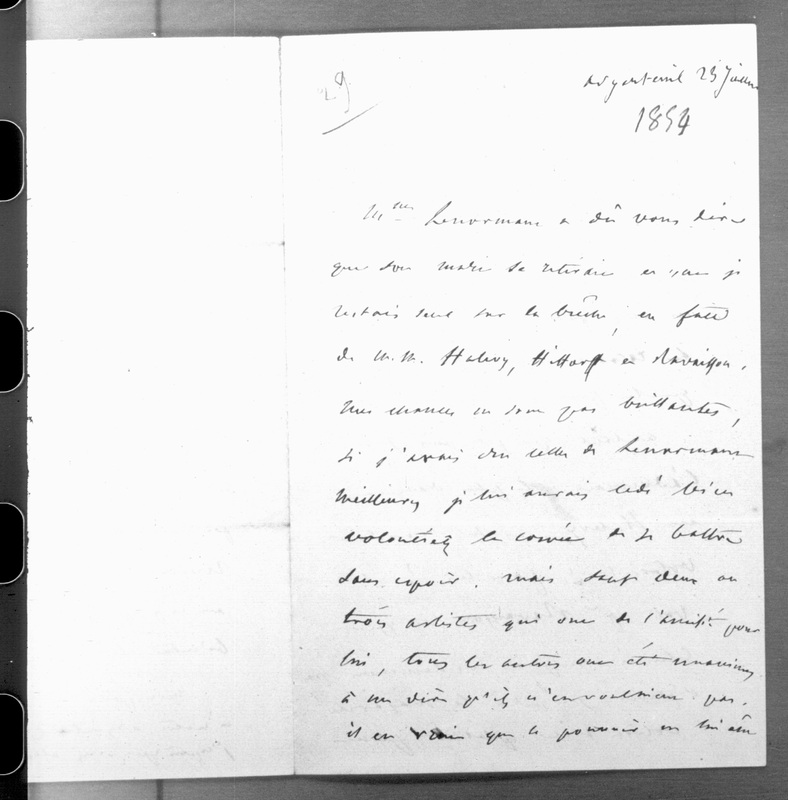 29
Argenteuil 23 Juillet
1854
Mme Lenormant a dû vous dire
que son mari se retirait et que je
restais seul sur la brèche, en face
de M.M. Halévy, Hittorff et Ravaisson.
mes chances ne sont pas brillantes,
si j'avais cru celles de Lenormant
meilleures je lui aurais cédé bien
volontiers la corvée de se battre
sans espoir. mais sauf deux ou
trois artistes qui ont de l'amitié pour
lui, tous les autres ont été unanimes
à me dire qu'ils n'en voulaient pas.
il est vrai que le pouvoir en lui